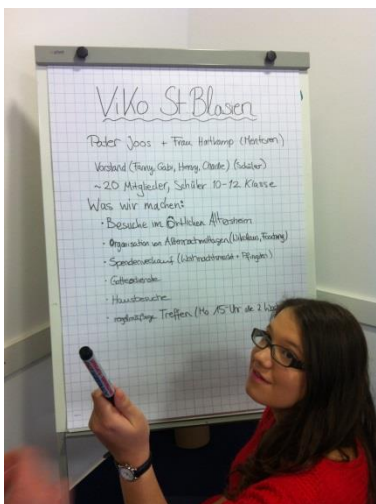 ViKo St Blasien
Pater Joos + Frau Hartkamp (Mentoren)
Vorstand (Fanny, Gabi, Henny, Charlie) (Schüler)
~20 Mitglieder, Schüler 10-12 Klasse
Was wir machen:
• Besuche im Örtlichen Altersheim
• Organisation von Altennachmittagen (Nikolaus, Fasching)
• Spendenverkauf (Weihnachtsmarkt + Pfingsten)
• Gottesdienste
• Hausbesuche
• regelmäßige Treffen (Mo 15 Uhr alle 2